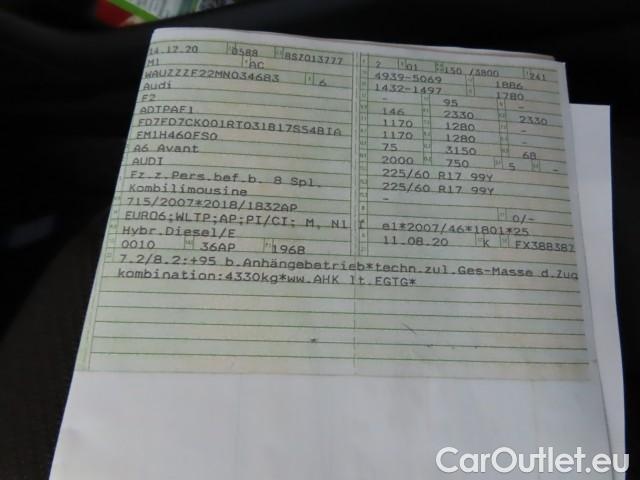 14.12.20 0588 8SZ013777
M1 AC
WAUZZZF22MN034683 6
Audi
F2
ADTPAF1
FD7FD7CK001RT031B17S54BIA
EM1H460FS0
A6 Avant
AUDI
Fz.z.Pers.bef.b. 8 Spl.
Kombilimousine
715/2007*2018/1832AP
EURO6;WLTP;AP;PI/CI; M, N1 I
Hybr.Diesel/E
0010 36AP 1968
2 01 150 /3800 241
4939-5069 1886
1432-1497 1780
- 95 -
146 2330 2330
1170 1280 -
1170 1280 -
75 3150 68
2000 750 5 -
225/60 R17 99Y
225/60 R17 99Y
-
0/-
e1*2007/46*1801*25
11.08.20 K FX388387
7.2/8.2:+95 b.Anhängebetrieb*techn.zul.Ges-Masse d.Zug
kombination:4330kg*ww.AHK lt.EGTG*
CarOutlet.eu